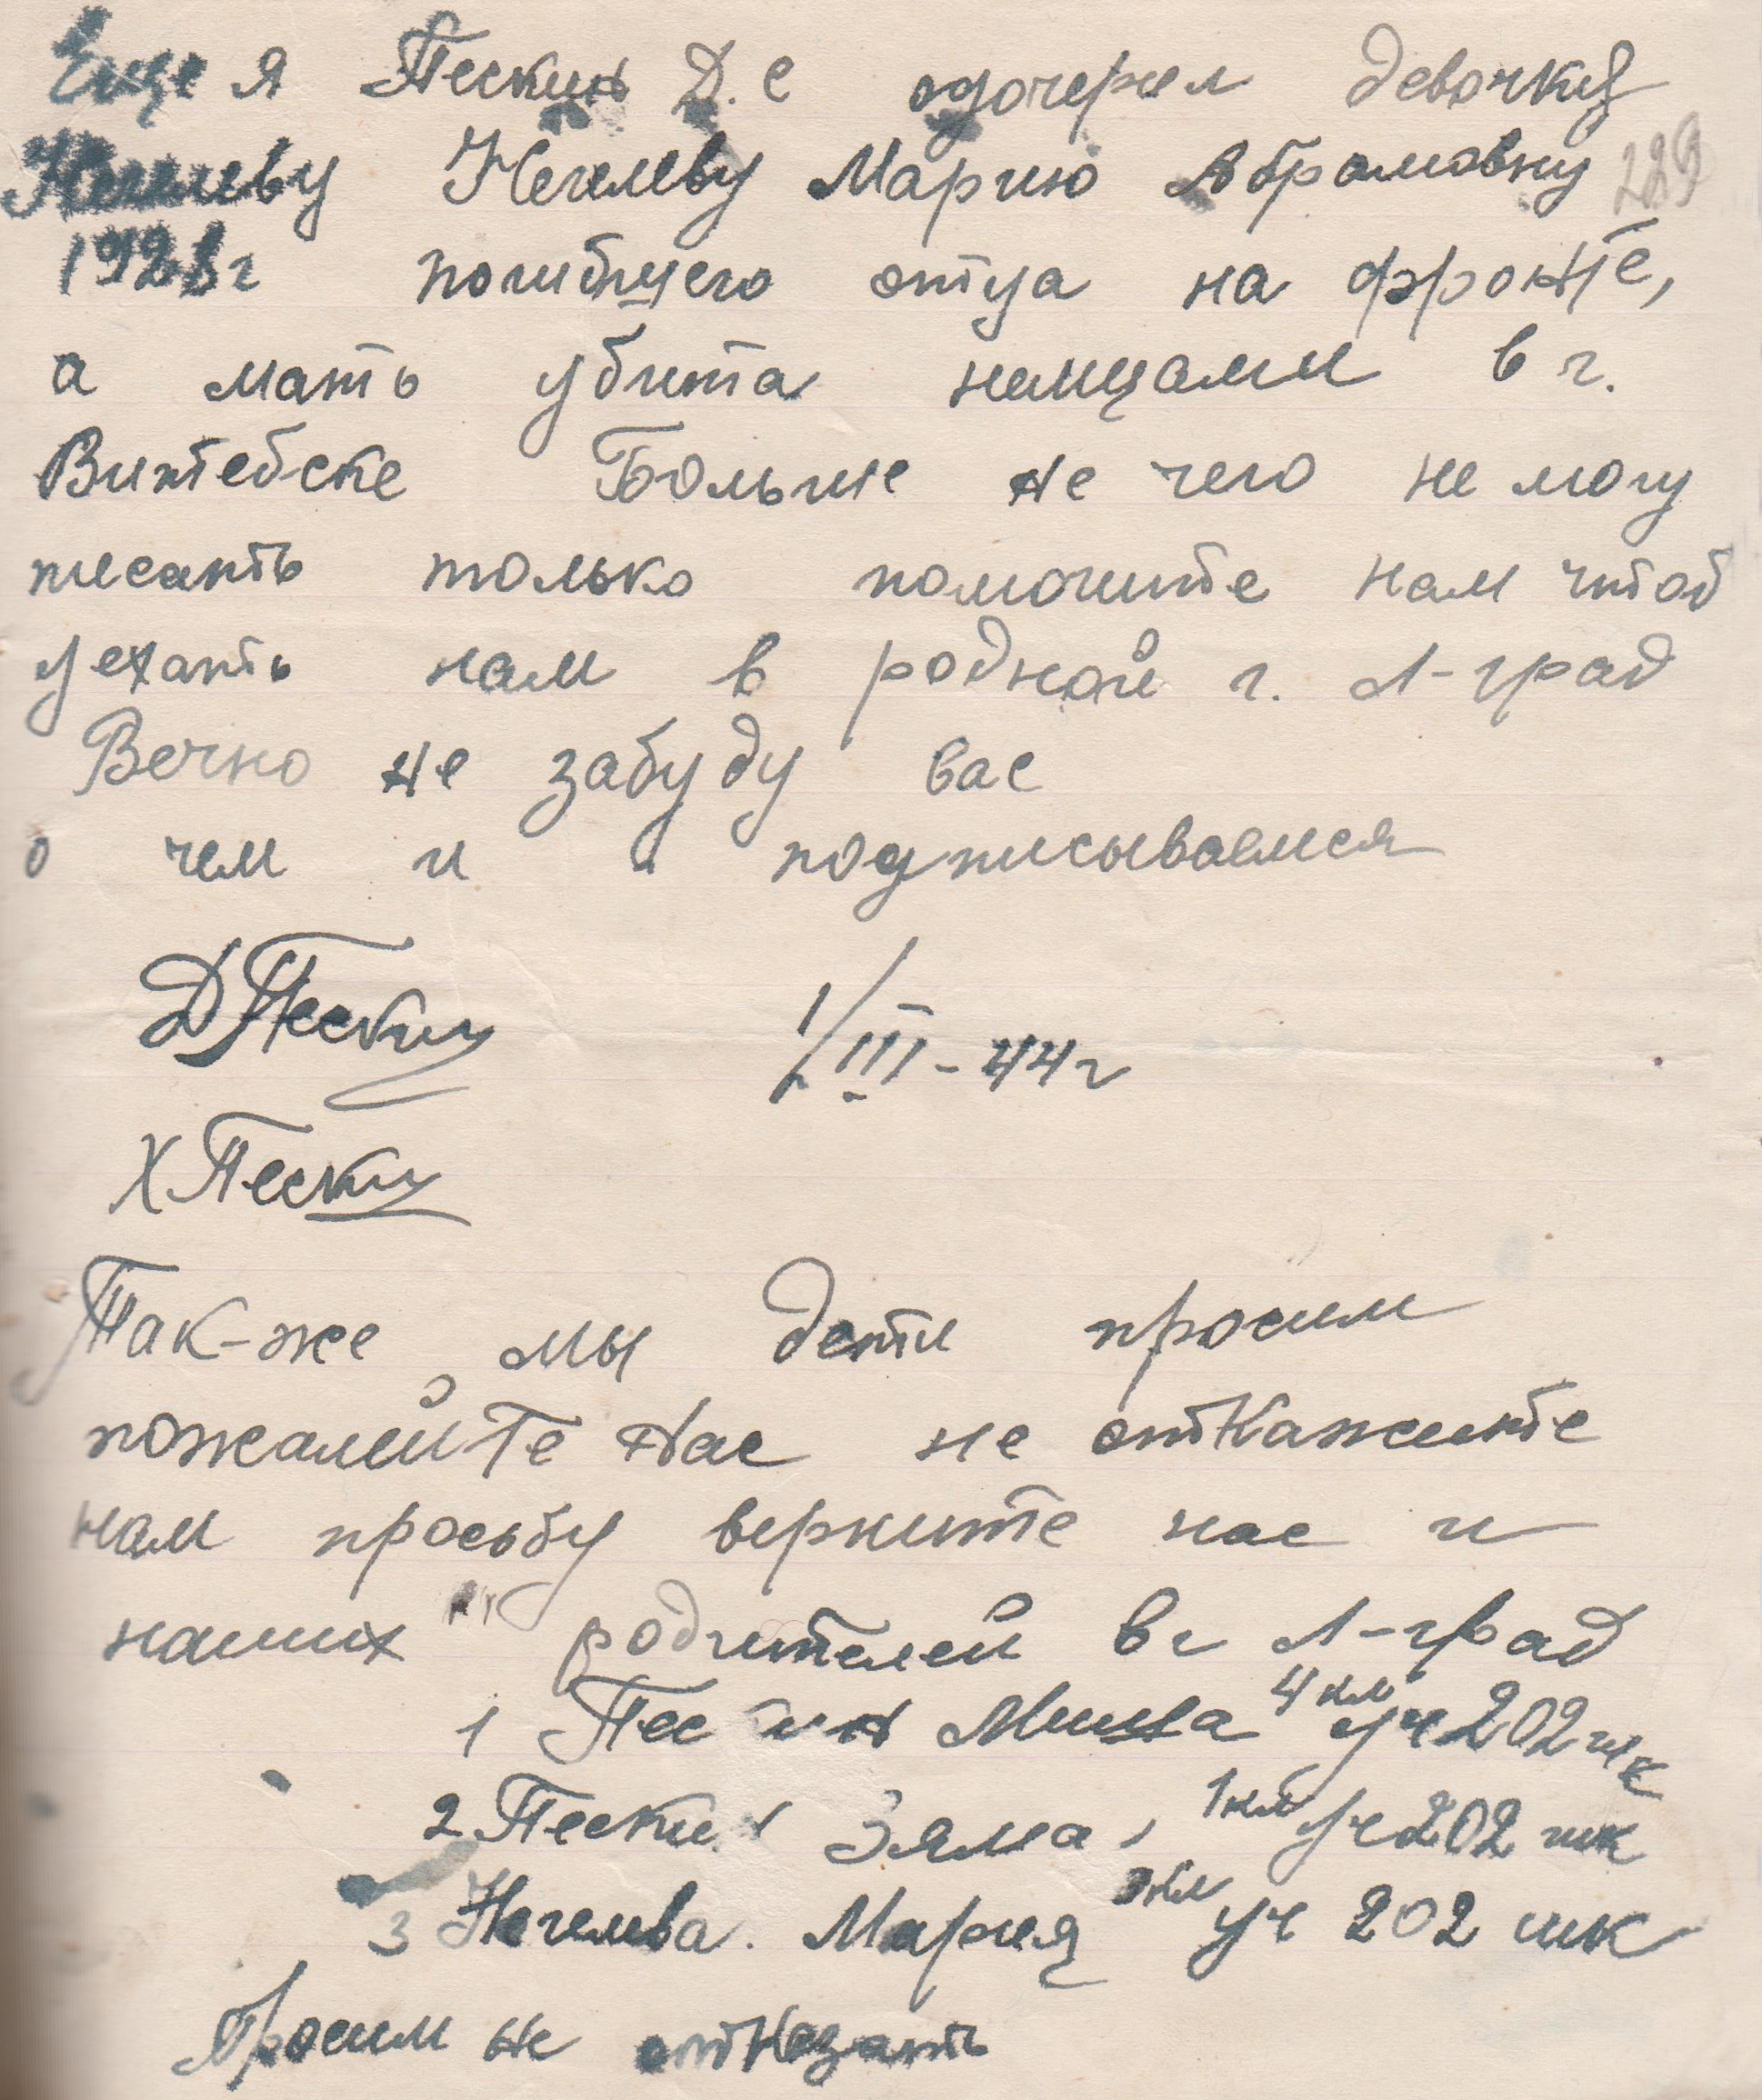 Еще я Пескин Д.С одочерил девочку
Нечлеву Марию Абрамовну 229
192 г погибшего отца на фронте,
а мать убита немцами в г.
Виктебске Больше не чего не могу
писать только помогите нам чтоб
уехать нам в родной г. Л-град
Вечно не забуду вас
о чем и подписываемся
Д Пескин 1/III-44г
Х Пескин
Так-же мы дети просим
пожалейте нас не откажите
нам просьбу верните нас и
наших родителей в г Л-град
1 Пес ин Миша 4 кл уч 202 шк
2 Пескин Зяма, 1 кл уч 202 шк
3 Нечлева. Мария 3 кл уч 202 шк
Просим не отказать